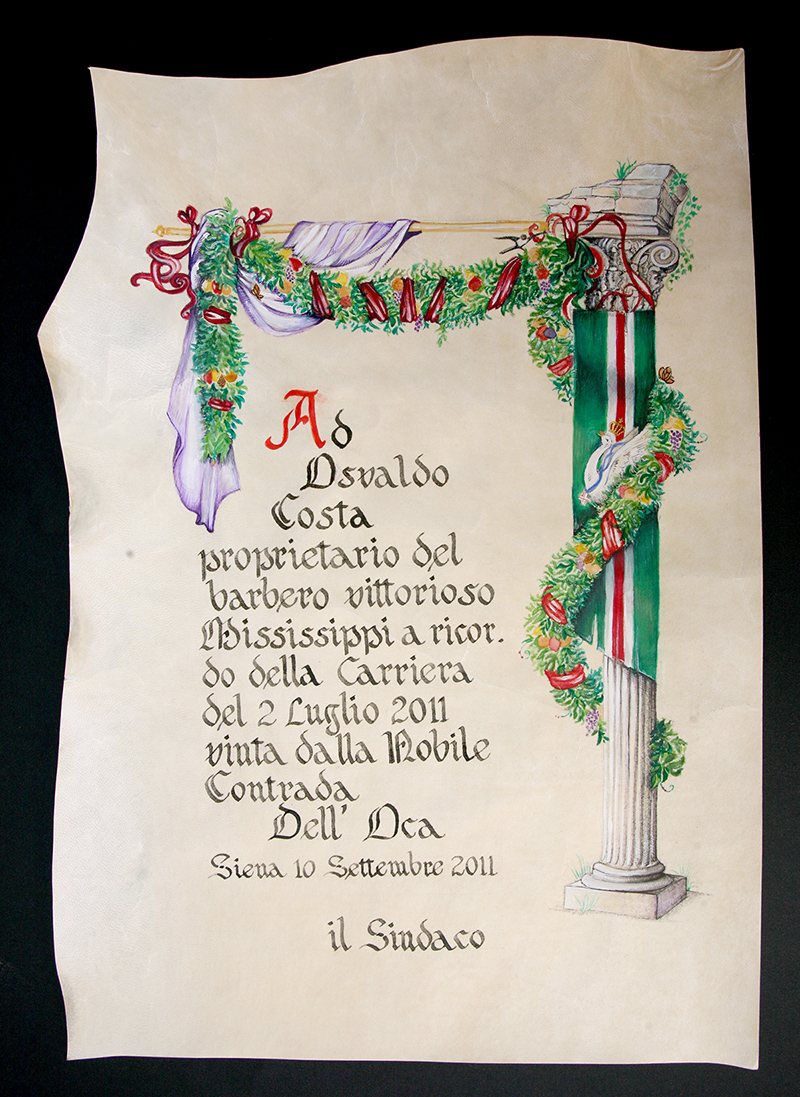 Ad
Osvaldo
Costa
proprietario del
barbero vittorioso
Mississippi a ricor.
do della Carriera
del 2 Luglio 2011
vinta dalla Nobile
Contrada
Dell' Oca
Siena 10 Settembre 2011
il Sindaco